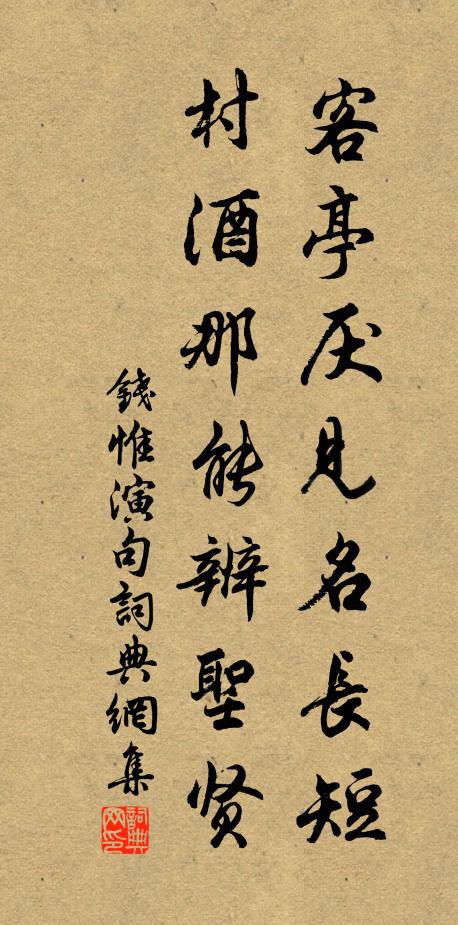 客亭厌见名長短
村酒那能辨聖贤
錢惟演句詞典網集
詞典网印